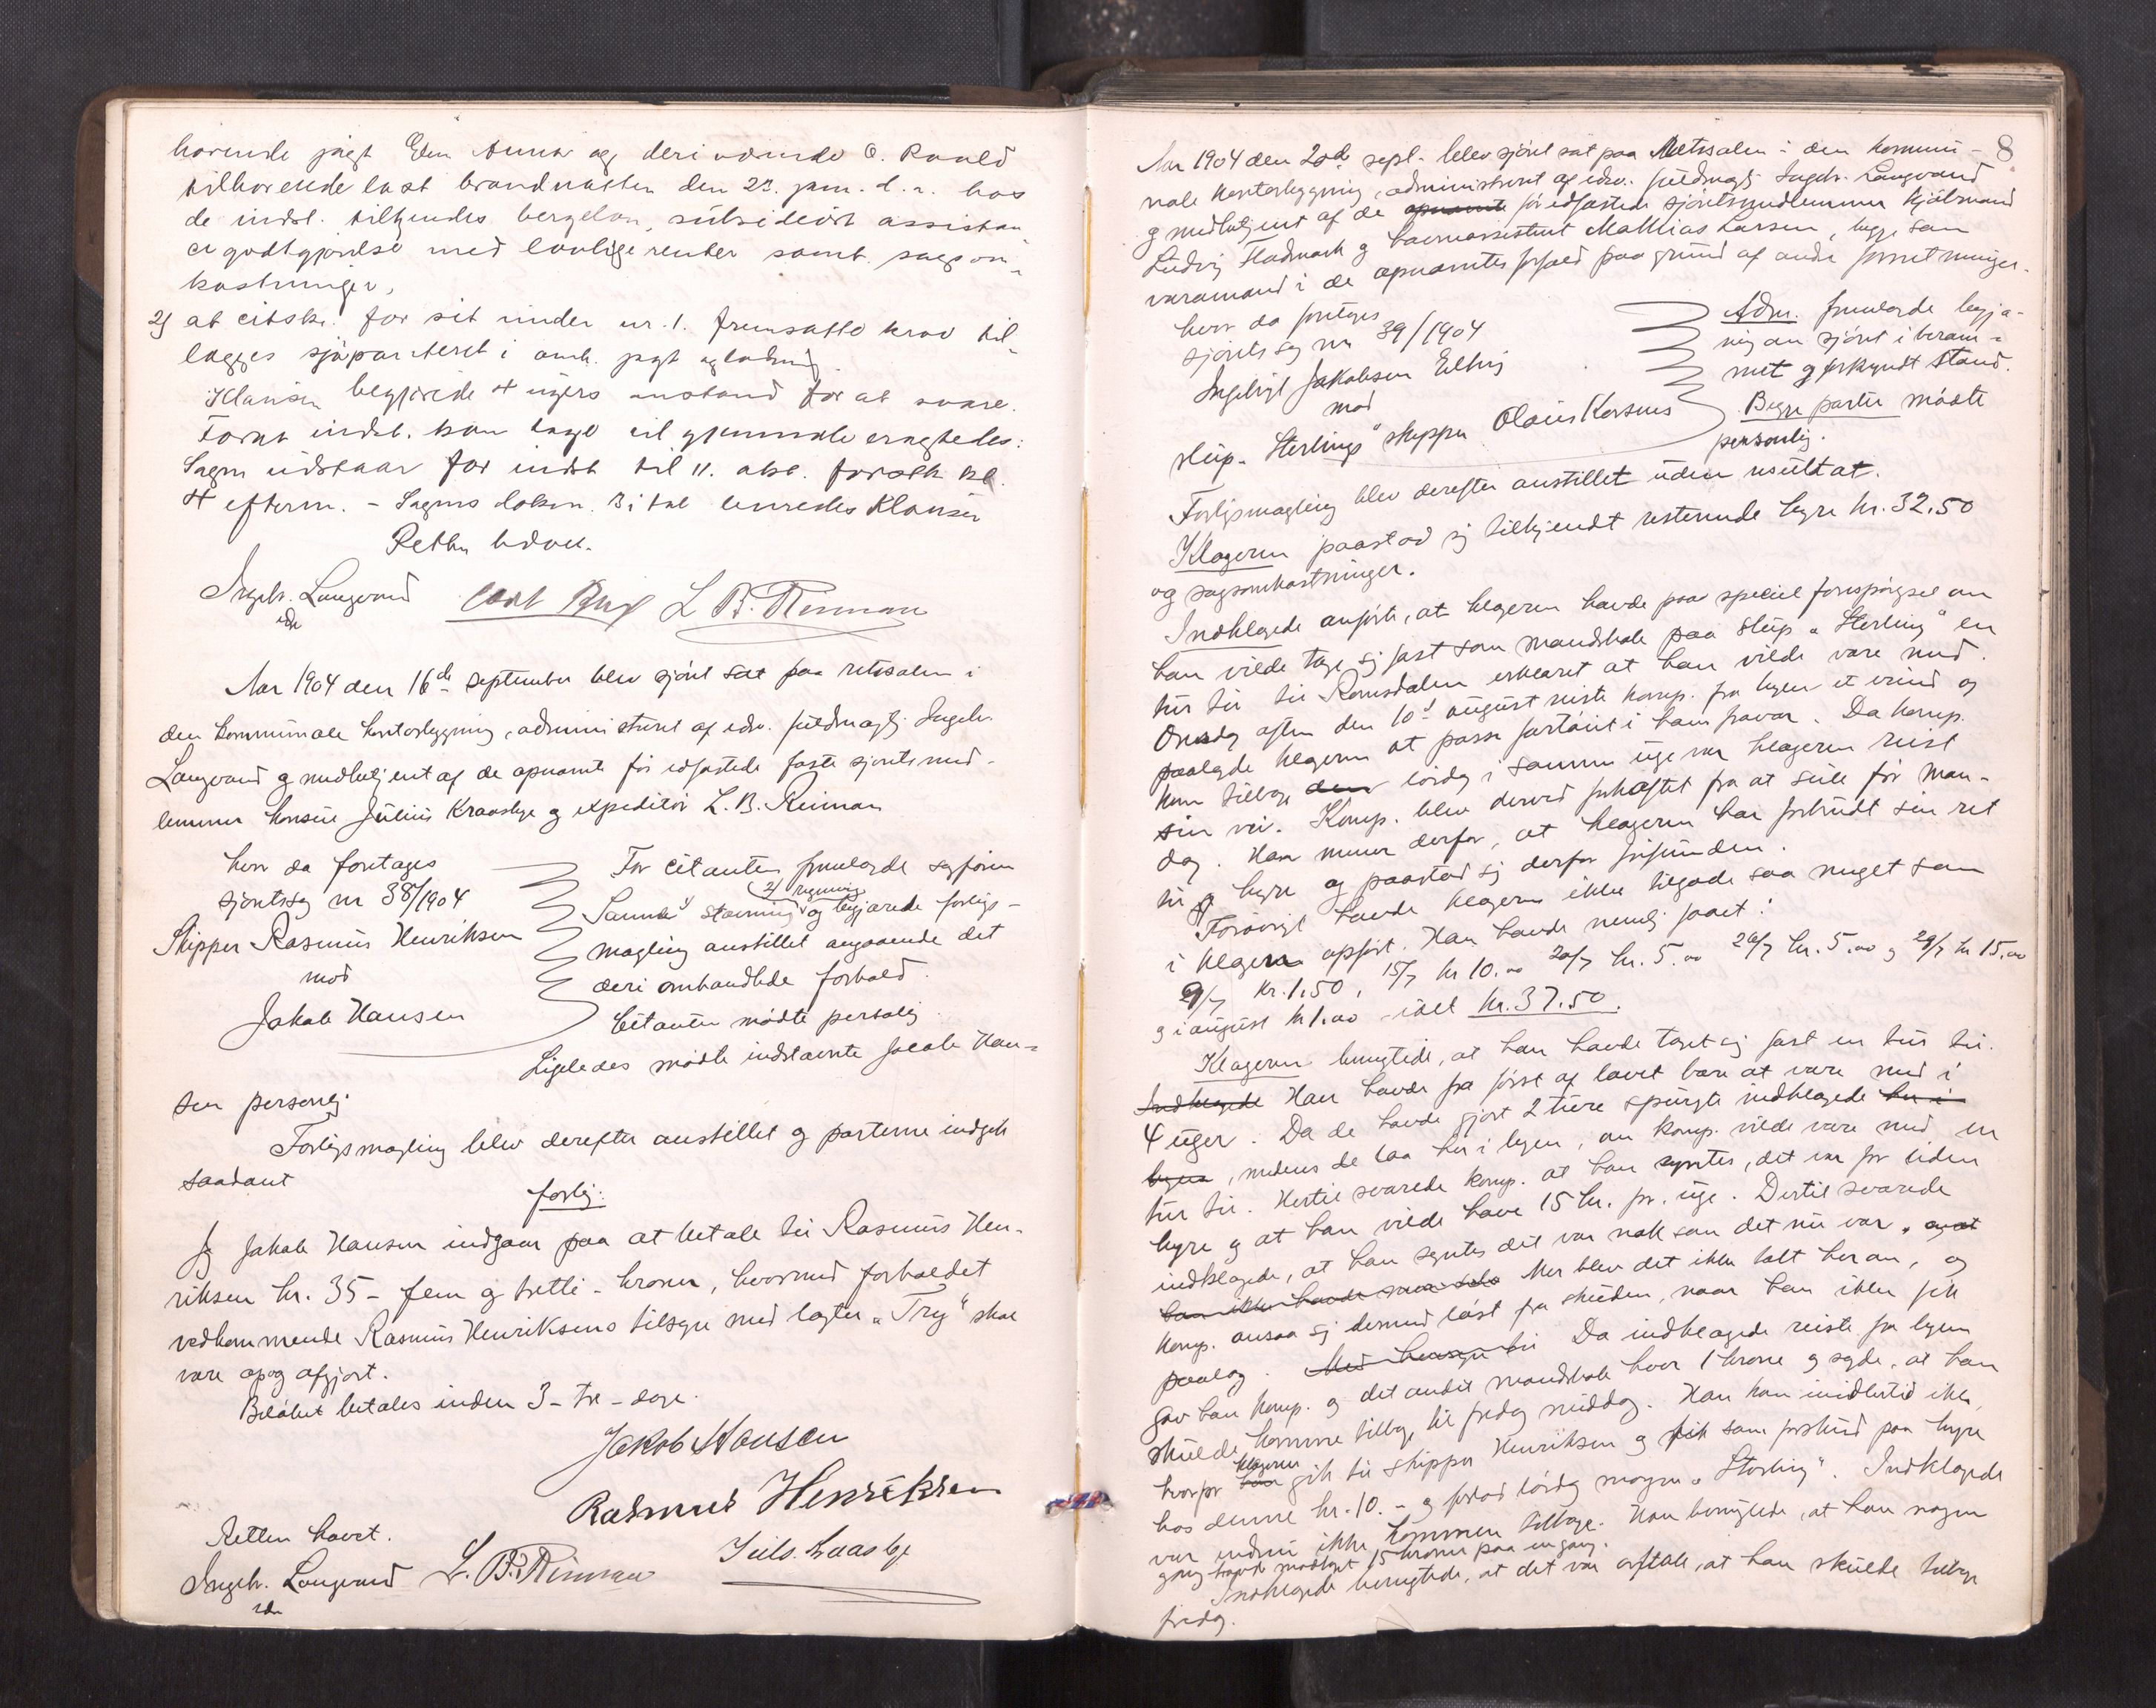 hørende jagt Elen Anna og deri værende O. Roald
tilhørende last brandnatten den 23. jan. d. a. hos
de indst. tilkjendes bergeløn, subsidiært assistan
cegodtgjørelse med lovlige renter samt sagsom-
kostninger,
2) at citskr. for sit under nr. 1. fremsatte krav til-
lægges sjøpanteret i omh. jagt og ladning
Klausen begjærede 4 ugers anstand for at svare.
indst. kun tage til gjenmæle eragtedes:
Sagen udstaar for indst til 11. okt. førstk kl.
4 efterm. - Sagens dokum. 3 i tal leveredes Klausen
Retten hævet.
Ingebr. Langvand L. B. Reiman
edv
Aar 1904 den 16de september blev sjøret sat paa retssalen i
den kommunale kontorbygning, administreret af edsv. fuldmægtig Ingebr.
Langvand og medbetjent af de opnævnte før edfæstede faste sjøretsmed-
lemmer konsul Julius Kraasbye og expeditør L. B. Reiman
hvor da foretages
sjøretssag nr 38/1904
Skipper Rasmus Henriksen
mod
Jakob Hansen
For citanten fremlagde sagfører
2) regning
stævning og begjærede forligs-
mægling anstillet angaaende det
deri omhandlede forhold.
Citanten mødte personlig
Ligeledes mødte indstævnte Jacob Han-
sen personlig.
Forligsmægling blev derefter anstillet og parterne indgik
saadant
forlig:
Jeg Jakob Hansen indgaar paa at betale til Rasmus Hen-
riksen kr. 35 - fem og tretti - kroner, hvormed forholdet
vedkommende Rasmus Henriksens tilsyn med lægter "Try" skal
være op og afgjort.
Beløbet betales inden 3 - tre - dage.
Jakob Hansen
Rasmus Henriksen
Retten hævet.
Ingebr. Langvand L. B. Reiman Juls. Kraasbye
edv
8
Aar 1904 den 20de sept. blev sjøret sat paa Retssalen i den kommu-
nale kontorbygning, administreret af edsv. fuldmægtig Ingebr. Langvand
og medbetjent af de opnævnte før edfæstede sjøretsmedlemmer
Ludvig Fladmark og havneassistent Mathias Larsen, begge som
varamænd i de opnævntes forfald paa grund af andre forretninger.
hvor da foretages
sjøretssag nr 39/1904
Ingebrigt Jakobsen
mod
slup. "Sterlings" skipper Olaus Korsnes
Adm. fremlagde begjæ-
ring om sjøret i beram-
met og forkyndt stand.
Begge parter mødte
personlig.
Forligsmægling blev derefter anstillet uden resultat.
Klageren paastod sig tilkjendt resterende hyre kr. 32.50
og sagsomkostninger.
Indklagede anførte, at klageren havde paa speciel forespørgsel om
han vilde tage sig fast som mandskab paa slup "Sterling" en
tur til til Romsdalen erklæret at han vilde være med.
Onsdag aften den 10de august reiste komp. fra byen et ærind og
paalagde klageren at passe fartøiet i hans fravær. Da komp.
kom tilbage den lørdag i samme uge var klageren reist
sin vei. Komp. blev derved forhæftet fra at seile før man-
dag. Han mener derfor, at klageren har forbrudt sin ret
til hyre og paastod sig derfor frifunden.
Forøvrigt havde klageren ikke tilgode saa meget som
i klagen opført. Han havde nemlig faaet:
9/7 kr. 1.50, 15/7 kr 10.00 20/7 kr. 5.00 26/7 kr. 5.00 og 29/7 kr 15.00
og i august kr 1.00 - ialt kr. 37.50.
Klageren benægtede, at han havde taget sig fast en tur til.
Indklagede Han havde fra først af lovet bare at være med i
4 uger. Da de havde gjort 2 ture spurgte indklagede her i
byen, medens de laa her i byen, om komp. vilde være med en
tur til. Hertil svarede komp. at han syntes, det var for liden
hyre og at han vilde have 15 kr. pr. uge. Dertil svarede
indklagede, at han syntes det var nok som det nu var. og at
Mer blev det ikke talt herom, og
komp. ansaa sig dermed løst fra skuden, naar han ikke fik
paalæg. Da indklagede reiste fra byen
gav han komp. og det andet mandskab hver 1 krone og sagde, at han
skulde komme tilbage til fredag middag. Han kom imidlertid ikke,
klageren
hvorfor han gik til skipper Henriksen og fik som forskud paa hyre
hos denne kr. 10. - og forlod lørdag morgen "Sterling". Indklagede
var endnu ikke kommen tilbage. Han benægtede, at han nogen
gang havde modtaget 15 kroner paa en gang.
Indklagede benægtede, at det var aftale, at han skulde tilbage
fredag.